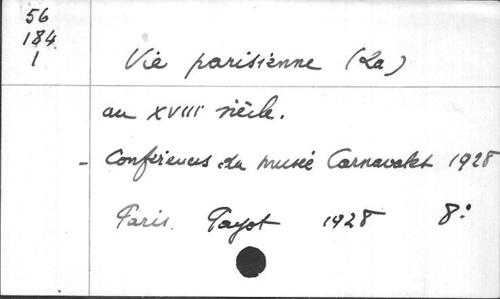 56
184
1
Vie parisienne (La)
au XVIII siècle.
- Conférences du musée Carnavalet 1928
Paris. Payot 1928 8°